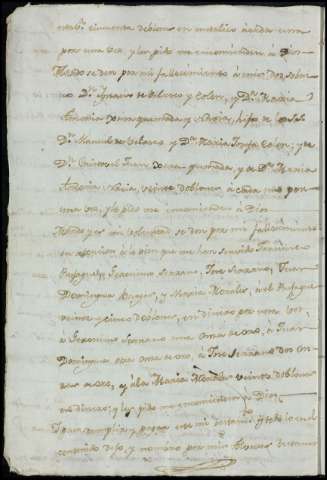 cinquenta doblones en metalico á cada una
por una vez y les pido me encomienden á Dios
Mando se den por mi fallecimiento á mis dos sobrinos
Dn. Ignacio de Vilares y Colon, y Da. Maria
Antonia Xaraquemada y, hijos de los SS.
Dn. Manuel de Vilares y Da. Maria Josefa Colon; y de
Dn. Cristoval Juan Xaraquemada, y de Da. Maria
Antonia, veinte doblones á cada uno por
una vez, y les pido me encomienden á Dios
Mando y es mi voluntad se den por mi fallecimiento
en atencion á lo bien que me han servido
Geronimo Serrano, Jose Serrano, Juan
Dominguez, y Maria Morales, á el
veinte y cinco doblones, en dinero por una vez,
á Geronimo Serrano una onza de oro, á Juan
Dominguez otra onza de oro, á Jose Serrano dos on
zas de oro, y á la Maria Morales veinte doblones
en dinero; y les pido me encomienden á Dios
Y para cumplir y pagar este mi testamto. y todo lo en el
contenido dejo, y nombro por mis Albaceas testamen